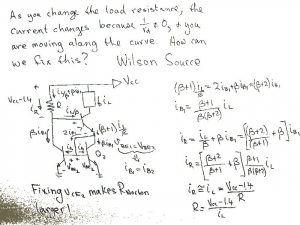 As you change the load resistance, the
current changes because 1/rd ≠ 0, & you
are moving along the curve. How can
we fix this? Wilson Source
Vcc
Vcc-1.4
R
iL
βiB1
(β+1)iL/β
2iB1
Q2
iB1 = iB2
Fixing VCE2 makes RNorton
larger!
(β+1) iL/β = 2iB1 + βiB1 = (β+2)iB1
iB1 = (β+1)/(β(β+2)) iL
iR = iL/β + βiB1 = [(β+2)/(β+1) + β] iB1
iR = [(β+2)/(β+1) + β] [(β+1)/(β(β+2))] iL
iR ≅ iL = (Vcc-1.4)/R
R = (Vcc-1.4)/iL